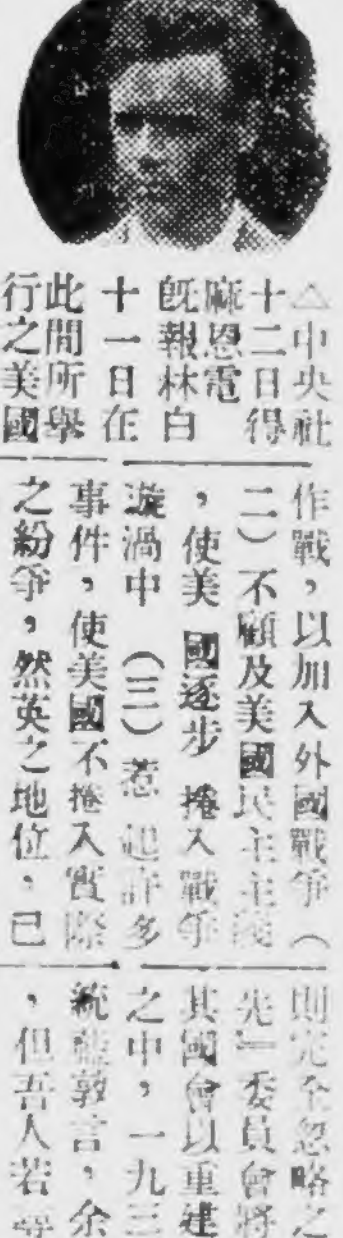 △中央社
十二日得
麻恩電
旣報林白
十一日在
此間所舉
行之美國
作戰，以加入外國戰爭（
二）不顧及美國民主主
，使美國逐步捲入戰爭
漩渦中（三）惹起許多
事件，使美國不捲入實際
之紛爭，然英之地位，已
則完全忽略之
先＝委員會將
其國會以重建
之中，一九三
統 敦言，余
，但吾人若